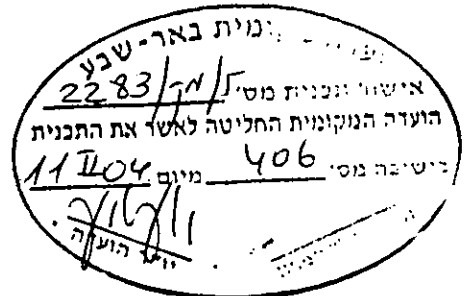 ועדה מקומית באר-שבע
אישור תכנית מס' 5/מק/2283
הועדה המקומית החליטה לאשר את התכנית
בישיבה מס' 406 מיום 11 II 04
יו"ר הועדה